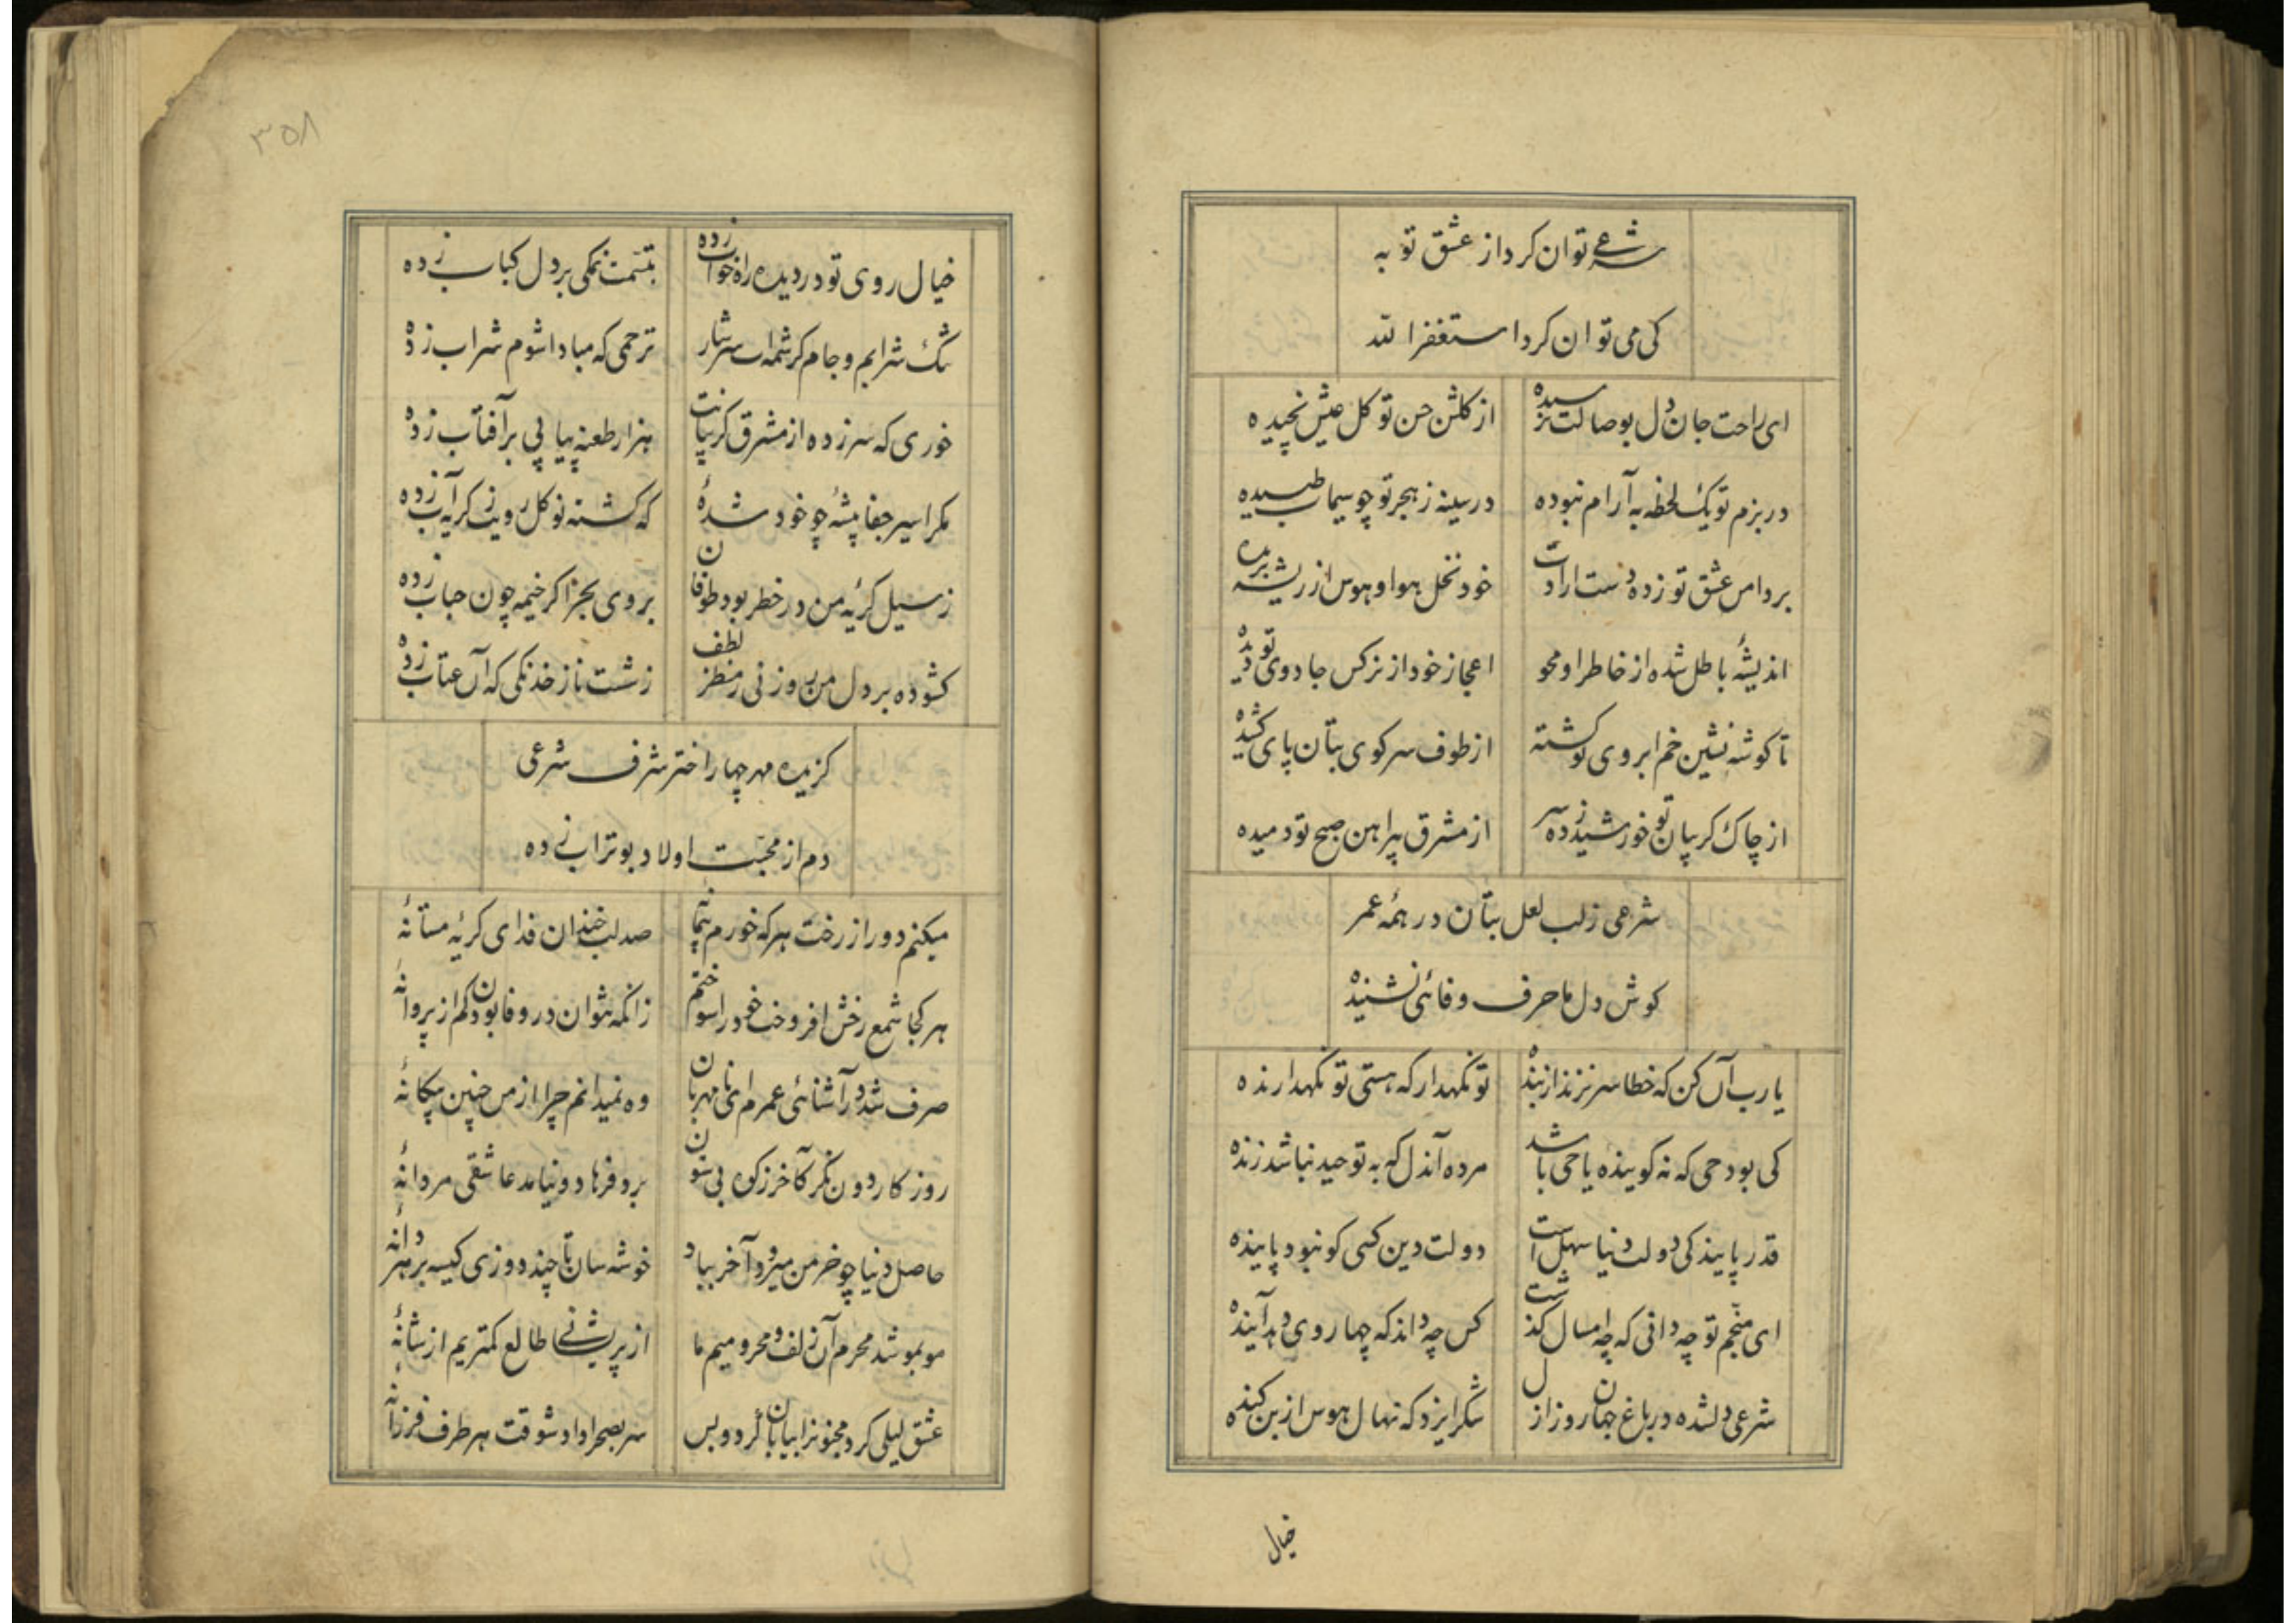 شرعی توان کرد از عشق توبه
کی می توان کرد استغفرالله
ای راحت جان دل بوصالت نرسیده
از کلشن حسن تو کل عیش نچیده
در بزم تو یک لحظه به آرام نبوده
در سینه ز هجر تو چو سیماب طپیده
بر دامن عشق تو زده دست ارادت
خود نخل هوا و هوس از ریشه بریده
اندیشهٔ باطل شده از خاطر او محو
اعجاز خود از نرکس جادوی تو دیده
تا کوشه نشین خم ابروی تو کشته
از طوف سر کوی بتان پای کشیده
از چاک کریبان تو خورشید زده سر
از مشرق پیراهن صبح تو دمیده
شرعی ز لب لعل بتان در همه عمر
کوش دل ما حرف وفائی نشنیده
یا رب آن کن که خطا سر نزند از بنده
تو نکهدار که هستی تو نکهدارنده
کی بود حی که نه کوینده یا حی باشد
مرده آندل که به توحید نباشد زنده
قدر پایندکی دولت دنیا سهل است
دولت دین کسی کو نبود پاینده
ای منجّم تو چه دانی که چه امسال کذشت
کس چه داند که چها روی دهد آینده
شرعی دلشده در باغ جهان روز ازل
شکر ایزد که نهال هوس از بن کنده
خیال
۳۵۸
خیال روی تو در دیده راه خواب زده
تبسّمت نمکی بر دل کباب زده
تنک شرابم و جام کرشمه ات سرشار
ترحمی که مبادا شوم شراب زده
خوری که سر زده از مشرق کریبانت
هزار طعنه پیاپی بر آفتاب زده
مکر اسیر جفا پیشهٔ چو خود شدهٔ
که کشته نو کل رویت ز کریه آب زده
ز سیل کریهٔ من در خطر بود طوفان
بروی بحر اکر خیمه چون حباب زده
کشوده بر دل من روزنی ز منظر لطف
ز شست ناز خدنکی که آن عتاب زده
کزیده مهر چهار اختر شرف شرعی
دم از محبّت اولاد بوتراب زده
میکنم دور از رخت هر که خورم پیمانهٔ
صد لب خندان فدای کریه مستانهٔ
هر کجا شمع رخش افروخت خود را سوختم
زانکه نتوان در وفا بودن کم از پروانهٔ
صرف شد در آشنائی عمرم ای نامهربان
وه نمیدانم چرا از من چنین بیکانهٔ
روزکار دون نکر کآخر ز کوه بی ستون
برد فرهاد و نیامد عاشقی مردانهٔ
حاصل دنیا چو خرمن میرود آخر بباد
خوشه سان تا چند دوزی کیسه بر هر دانهٔ
مو بمو شد محرم آن زلف و محرومیم ما
از پریشانی طالع کمتریم از شانهٔ
عشق لیلی کرد مجنونرا بیابان کرد و بس
سر بصحرا داد شوقت هر طرف فرزانهٔ